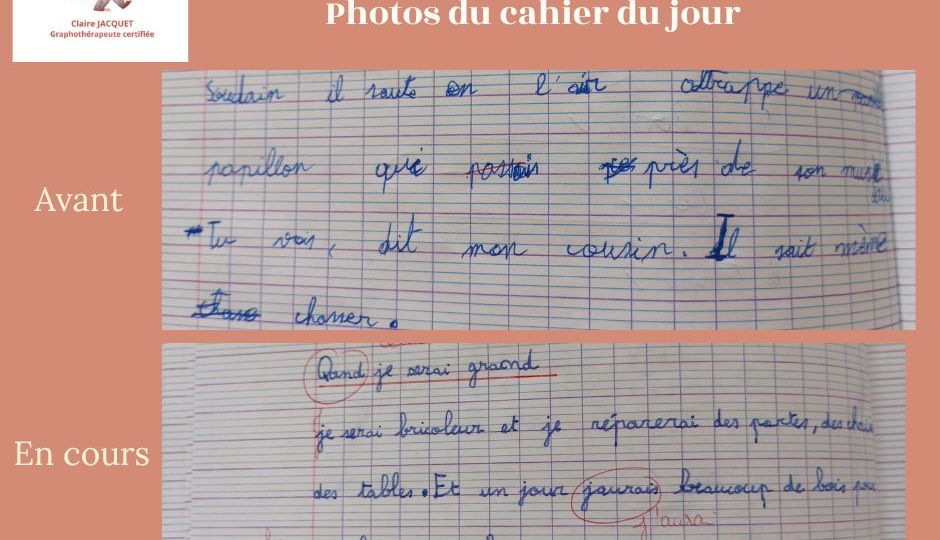 Claire JACQUET
Graphothérapeute certifiée
Photos du cahier du jour
Avant
Soudain il saute en l'air attrappe un
papillon qui passais près de son museau
- Tu vois, dit mon cousin. Il sait même
chasser.
En cours
Qand je serai graond
je serai bricoleur et je réparerai des portes, des chai
des tables. Et un jour jaurais beaucoup de bois pou
j'aurai